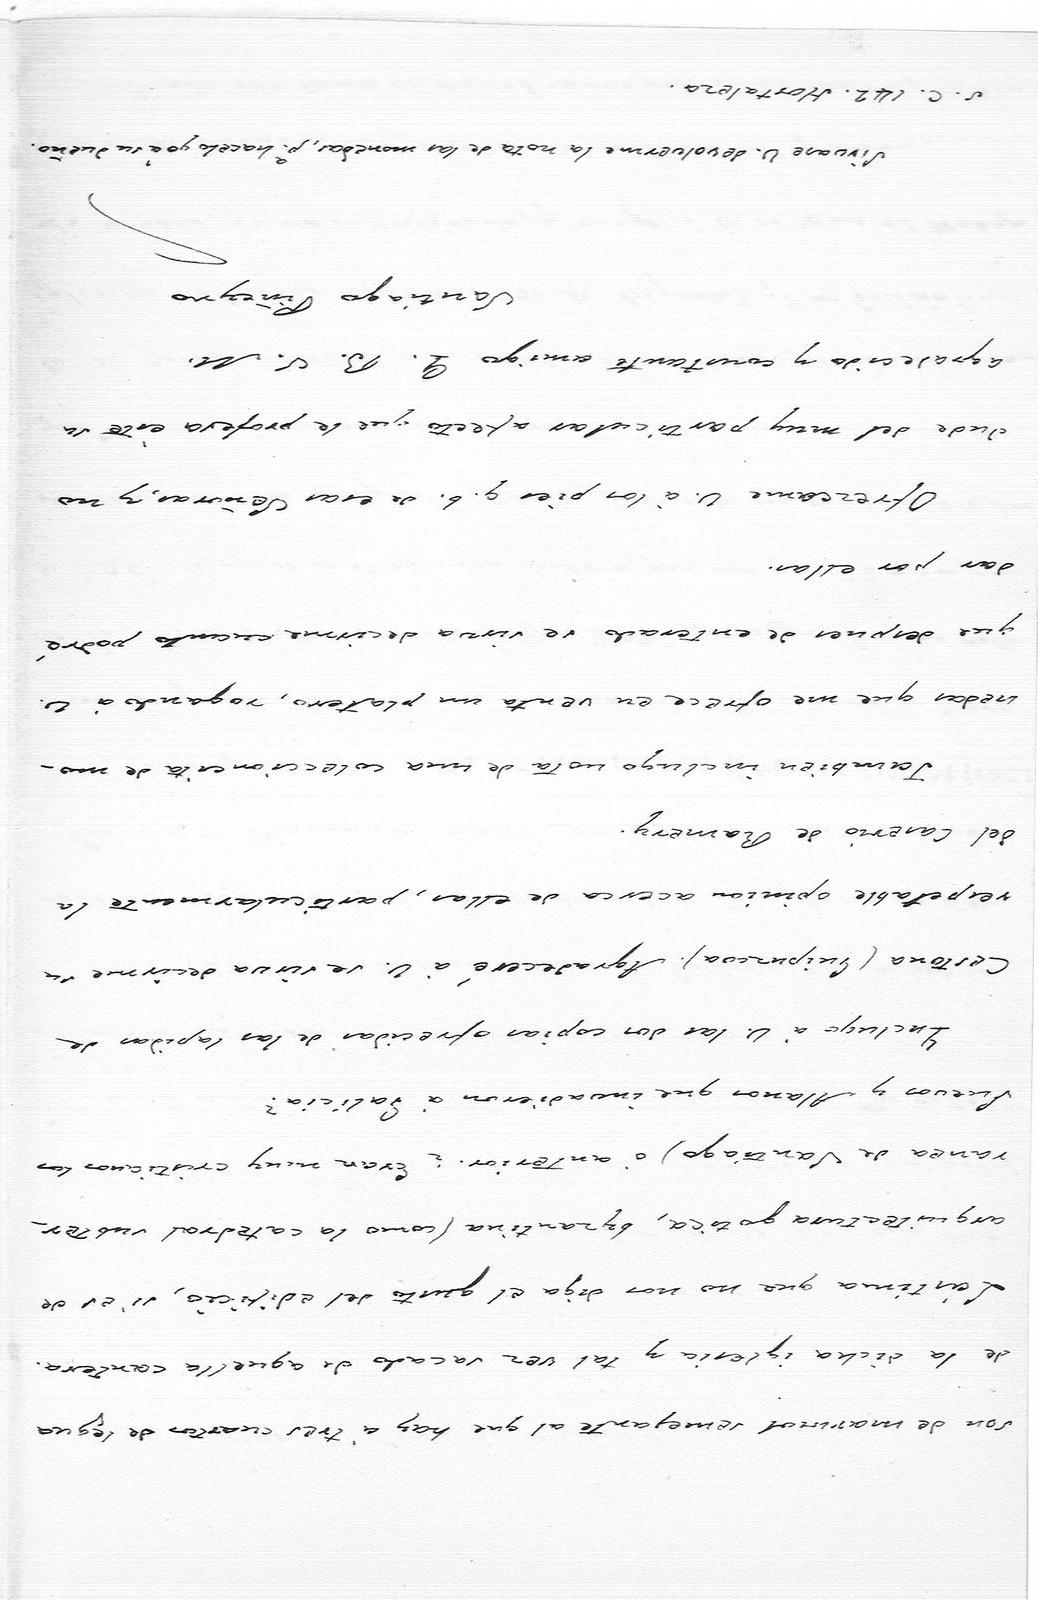 son de marmol semejante al que hay á tres cuartos de legua
de la dicha iglesia y tal vez sacado de aquella cantera.
Lástima que no nos diga el gusto del edificio, si es de
arquitectura gotica, byzantina (como la catedral subter-
ranea de Santiago) ó anterior. ¿Eran muy cristianos los
Suevos y Alanos que invadieron á Galicia?
Incluyo á V. las dos copias ofrecidas de las lapidas de
Cestona (Guipuzcoa). Agradeceré á V. se sirva decirme su
respetable opinion acerca de ellas, particularmente la
del Caserio de Ramery.
Tambien incluyo nota de una coleccioncita de mo-
nedas que me ofrece en venta un platero, rogando á V.
que despues de enterado se sirva decirme cuanto podré
dar por ellas.
Ofrezcame V. á los pies q. b. de esas Señoras, y no
dude del muy particular afecto que le profesa éste su
agradecido y constante amigo Q. B. S. M.
Santiago Piñeyro
Sirvase V. devolverme la nota de las monedas, pª hacelo yo á su dueño.
S. C. 142. Hortaleza.